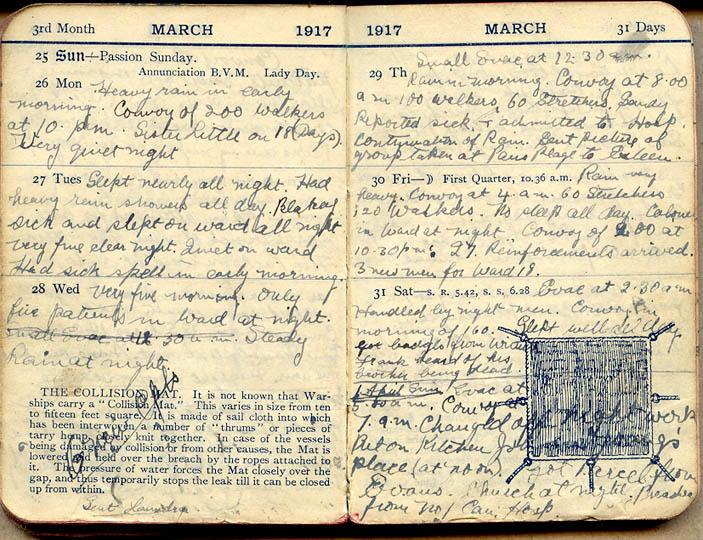 3rd Month MARCH 1917
25 Sun—Passion Sunday.
Annunciation B.V.M. Lady Day.
26 Mon Heavy rain in early
morning. Convoy of 200 walkers
at 10. p.m. Sister Little on 18 (Days).
Very quiet night
27 Tues Slept nearly all night. Had
heavy rain showers all day. Blakey
sick and slept on ward all night
very fine clear night. Quiet on ward
Had sick spell in early morning.
28 Wed Very fine morning. Only
five patients in ward at night.
Small Evac at 12 30 a.m. Steady
Rain at night
THE COLLISION MAT. It is not known that War-
ships carry a "Collision Mat." This varies in size from ten
to fifteen feet square. It is made of sail cloth into which
has been interwoven a number of "thrums" or pieces of
tarry hemp closely knit together. In case of the vessels
being damaged by collision or from other causes, the Mat is
lowered and held over the breach by the ropes attached to
it. The pressure of water forces the Mat closely over the
gap, and thus temporarily stops the leak till it can be closed
up from within.
Sent Laundry
1917 MARCH 31 Days
Small Evac at 12 30 a.m.
29 Th Rain in morning. Convoy at 8.00
a m 100 walkers, 60 Stretchers. Sandy
Reported sick & admitted to Hosp.
Continuation of Rain. Sent picture of
group taken at Paris Plage to Eileen.
30 Fri— First Quarter, 10.36 a.m. Rain very
heavy. Convoy at 4 a.m. 60 Stretchers
120 Walkers. No sleep all day.
in Ward at night Convoy of 200 at
10.30 p.m. 27 Reinforcements arrived.
3 new men for Ward 18.
31 Sat—S. R. 5.42, S. S. 6.28 Evac at 2.30 a.m
Handled by night men. Convoy in
morning of 160. Slept well all day
got badges from
Frank heard of his
brother being dead.
1 April Sun Evac at
a.m. Convoy at
7. a.m. Changed off night work
Put on Kitchen
place (at noon). Got Parcel from
Evans. Church at night.
from No 1 Can. Hosp